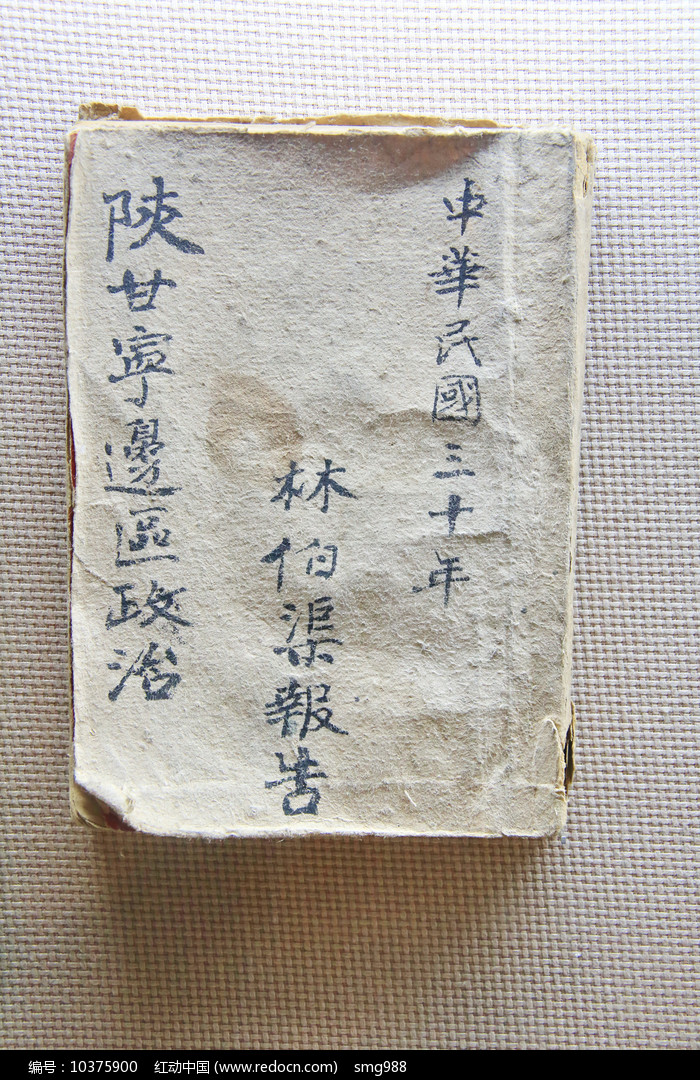 中華民國三十年
林伯渠報告
陝甘寧邊區政治
编号：10375900 红动中国 (www.redocn.com) smg988